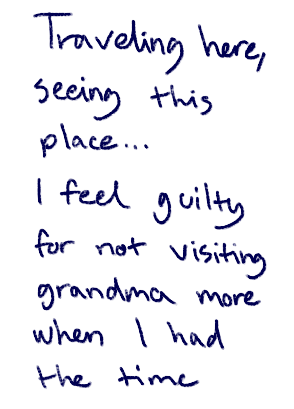 Traveling here,
seeing this
place...
I feel guilty
for not visiting
grandma more
when I had
the time